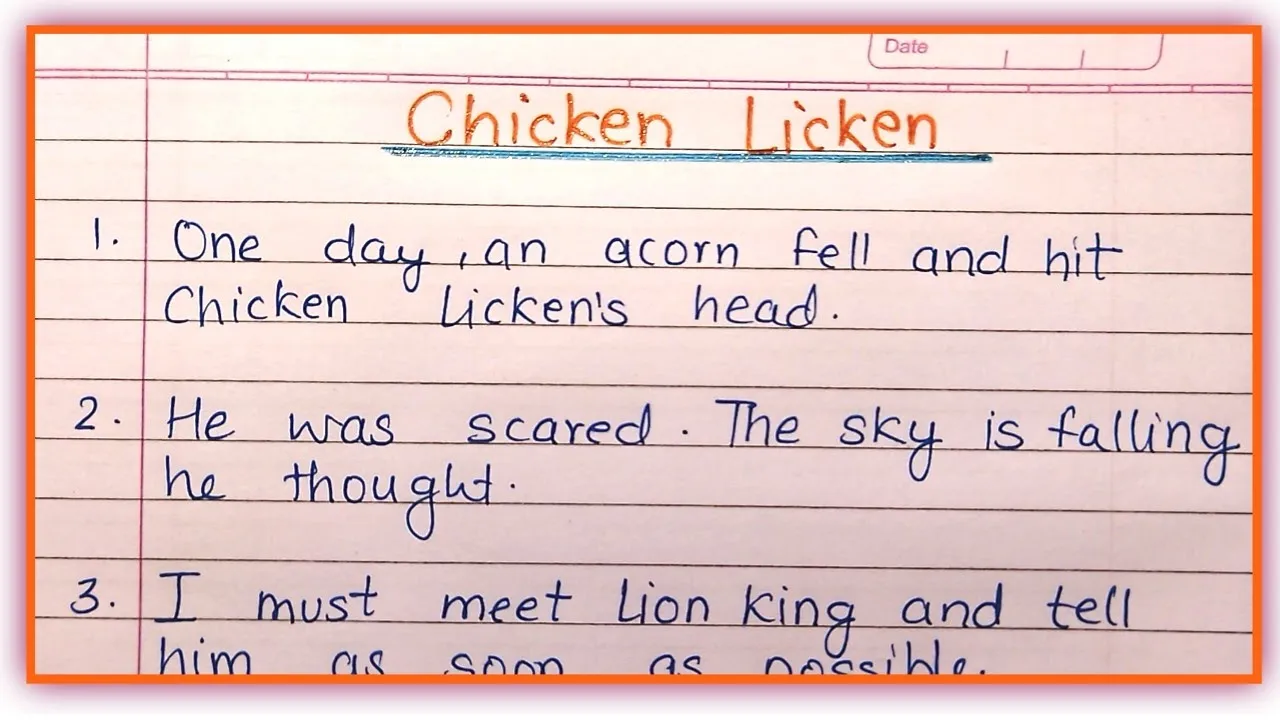 Date
Chicken Licken
1. One day, an acorn fell and hit
Chicken Licken's head.
2. He was scared. The sky is falling
he thought.
3. I must meet Lion king and tell
him as soon as possible.